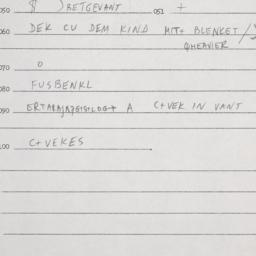 050 $ ) BETGEVANT 051 +
060 DEK CU DEM KIND MIT+ BLENKET /
@HEAVIER
070 0
080 FUSBENKL
090 A C+VEK IN VANT
100 C+VEKES